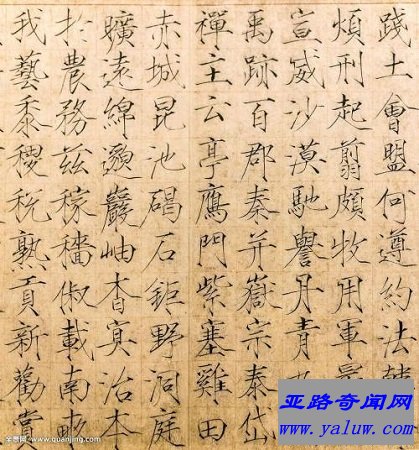 踐土會盟何遵約法韓
煩刑起翦頗牧用軍最
宣威沙漠馳譽丹青
禹跡百郡秦并嶽宗泰岱
禪主云亭鴈門紫塞雞田
赤城昆池碣石鉅野洞庭
曠遠綿邈巖岫杳冥治本
於農務茲稼穡俶載南畝
我藝黍稷稅熟貢新勸賞
亚路奇闻网
www.yaluw.com
全景网 www.quanjing.com